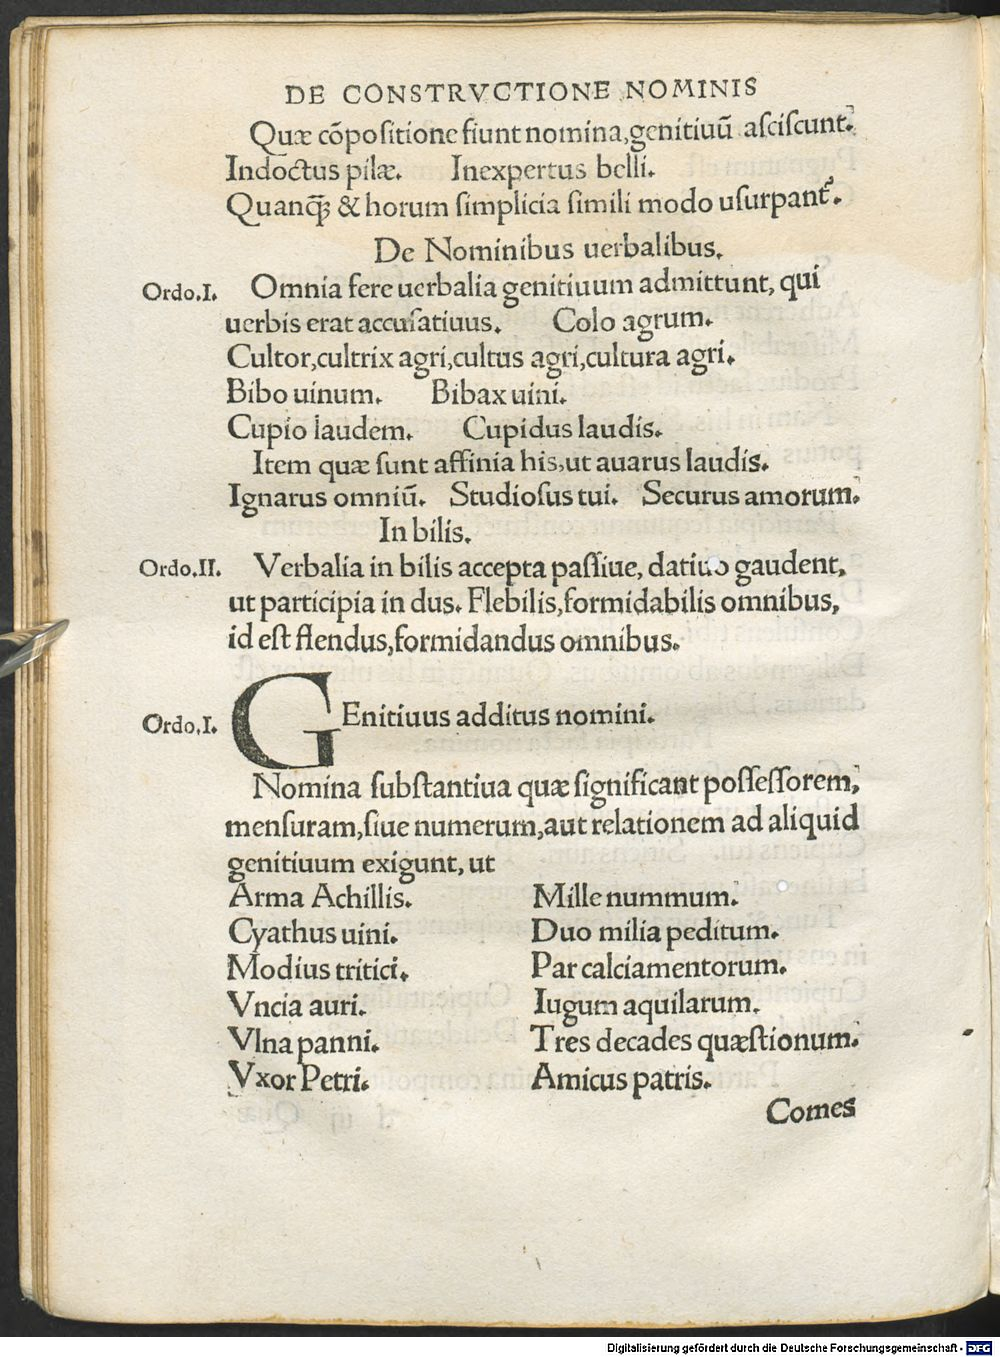 DE CONSTRVCTIONE NOMINIS
Quæ cōpositione fiunt nomina,genitiuū asciscunt.
Indoctus pilæ. Inexpertus belli.
Quanq̃ & horum simplicia simili modo usurpant᷑.
De Nominibus uerbalibus.
Ordo.I. Omnia fere uerbalia genitiuum admittunt, qui
uerbis erat accusatiuus. Colo agrum.
Cultor,cultrix agri,cultus agri,cultura agri.
Bibo uinum. Bibax uini.
Cupio laudem. Cupidus laudis.
Item quæ sunt affinia his,ut auarus laudis.
Ignarus omniū. Studiosus tui. Securus amorum.
In bilis.
Ordo.II. Verbalia in bilis accepta passiue, datiuo gaudent,
ut participia in dus. Flebilis,formidabilis omnibus,
id est flendus,formidandus omnibus.
Ordo.I. GEnitiuus additus nomini.
Nomina substantiua quæ significant possessorem,
mensuram,siue numerum,aut relationem ad aliquid
genitiuum exigunt, ut
Arma Achillis. Mille nummum.
Cyathus uini. Duo milia peditum.
Modius tritici. Par calciamentorum.
Vncia auri. Iugum aquilarum.
Vlna panni. Tres decades quæstionum.
Vxor Petri. Amicus patris.
Comes
Digitalisierung gefördert durch die Deutsche Forschungsgemeinschaft - DFG